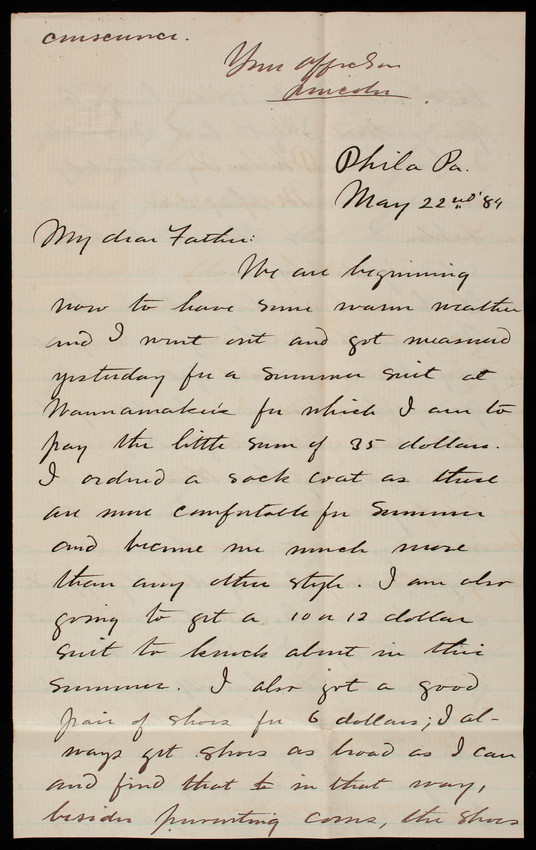 Your affec Son
Lincoln.
Phila Pa.
May 22nd '84
My dear Father:
We are beginning
now to have some warm weather
and I went out and got measured
yesterday for a summer suit at
Wannamaker's for which I am to
pay the little sum of 35 dollars.
I ordered a sack coat as these
are more comfortable for summer
and become me much more
than any other style. I am also
going to get a 10 or 12 dollar
suit to knock about in this
summer. I also got a good
pair of shoes for 6 dollars; I al-
ways get shoes as broad as I can
and find that in that way,
besides preventing corns, the shoes